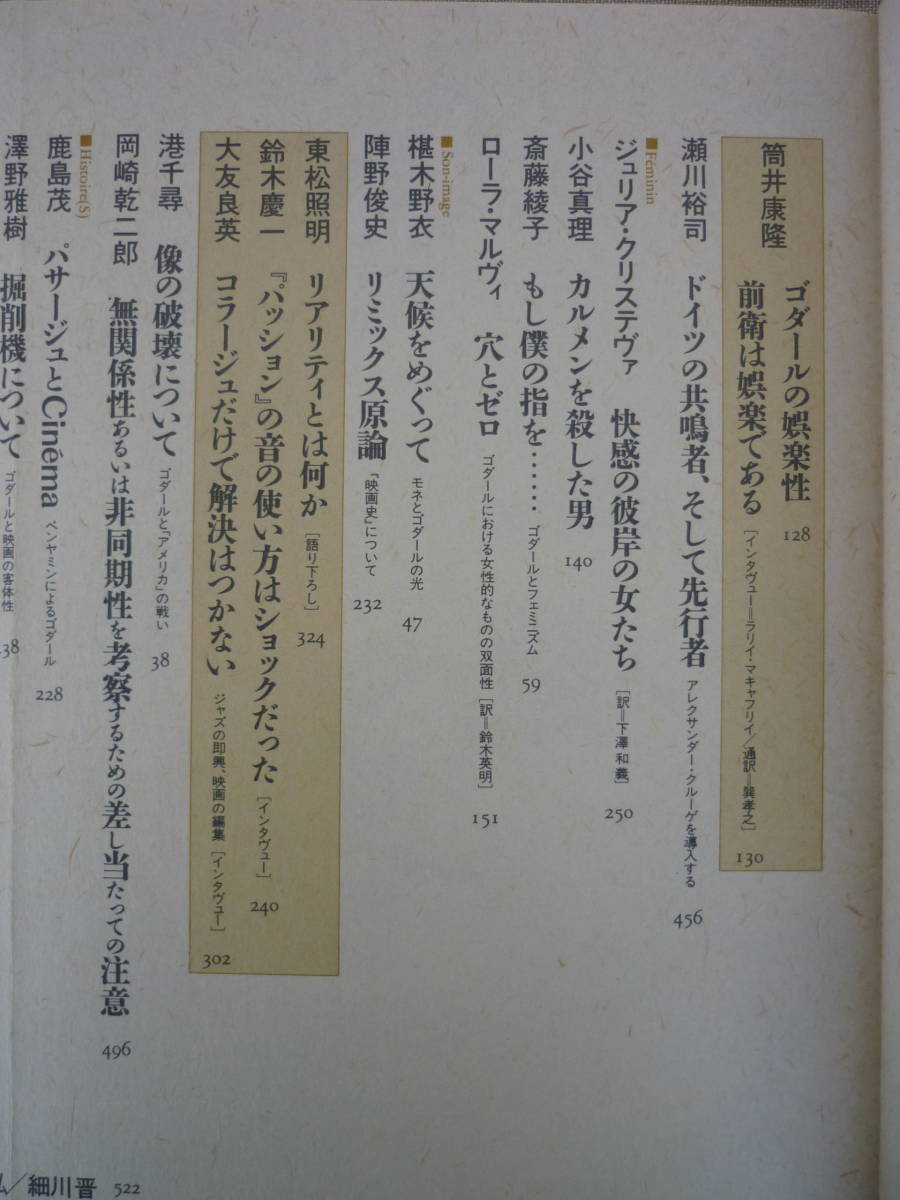 筒井康隆
ゴダールの娯楽性 128
前衛は娯楽である [インタヴュー=ラリイ・マキャフリイ/通訳=巽孝之] 130
瀬川裕司 ドイツの共鳴者、そして先行者 アレクサンダー・クルーゲを導入する 456
■Féminin
ジュリア・クリステヴァ 快感の彼岸の女たち [訳=下澤和義] 250
小谷真理 カルメンを殺した男 140
斎藤綾子 もし僕の指を‥‥‥ ゴダールとフェミニズム 59
ローラ・マルヴィ 穴とゼロ ゴダールにおける女性的なものの双面性 [訳=鈴木英明] 151
■Son-image
椹木野衣 天候をめぐって モネとゴダールの光 47
陣野俊史 リミックス原論 「映画史」について 232
東松照明 リアリティとは何か [語り下ろし] 324
鈴木慶一 『パッション』の音の使い方はショックだった [インタヴュー] 240
大友良英 コラージュだけで解決はつかない ジャズの即興、映画の編集 [インタヴュー] 302
港千尋 像の破壊について ゴダールと「アメリカ」の戦い 38
岡崎乾二郎 無関係性あるいは非同期性を考察するための差し当たっての注意 496
■Histoire(S)
鹿島茂 パサージュとCinéma ベンヤミンによるゴダール 228
澤野雅樹 掘削機について ゴダールと映画の客体性 38
/細川晋 522